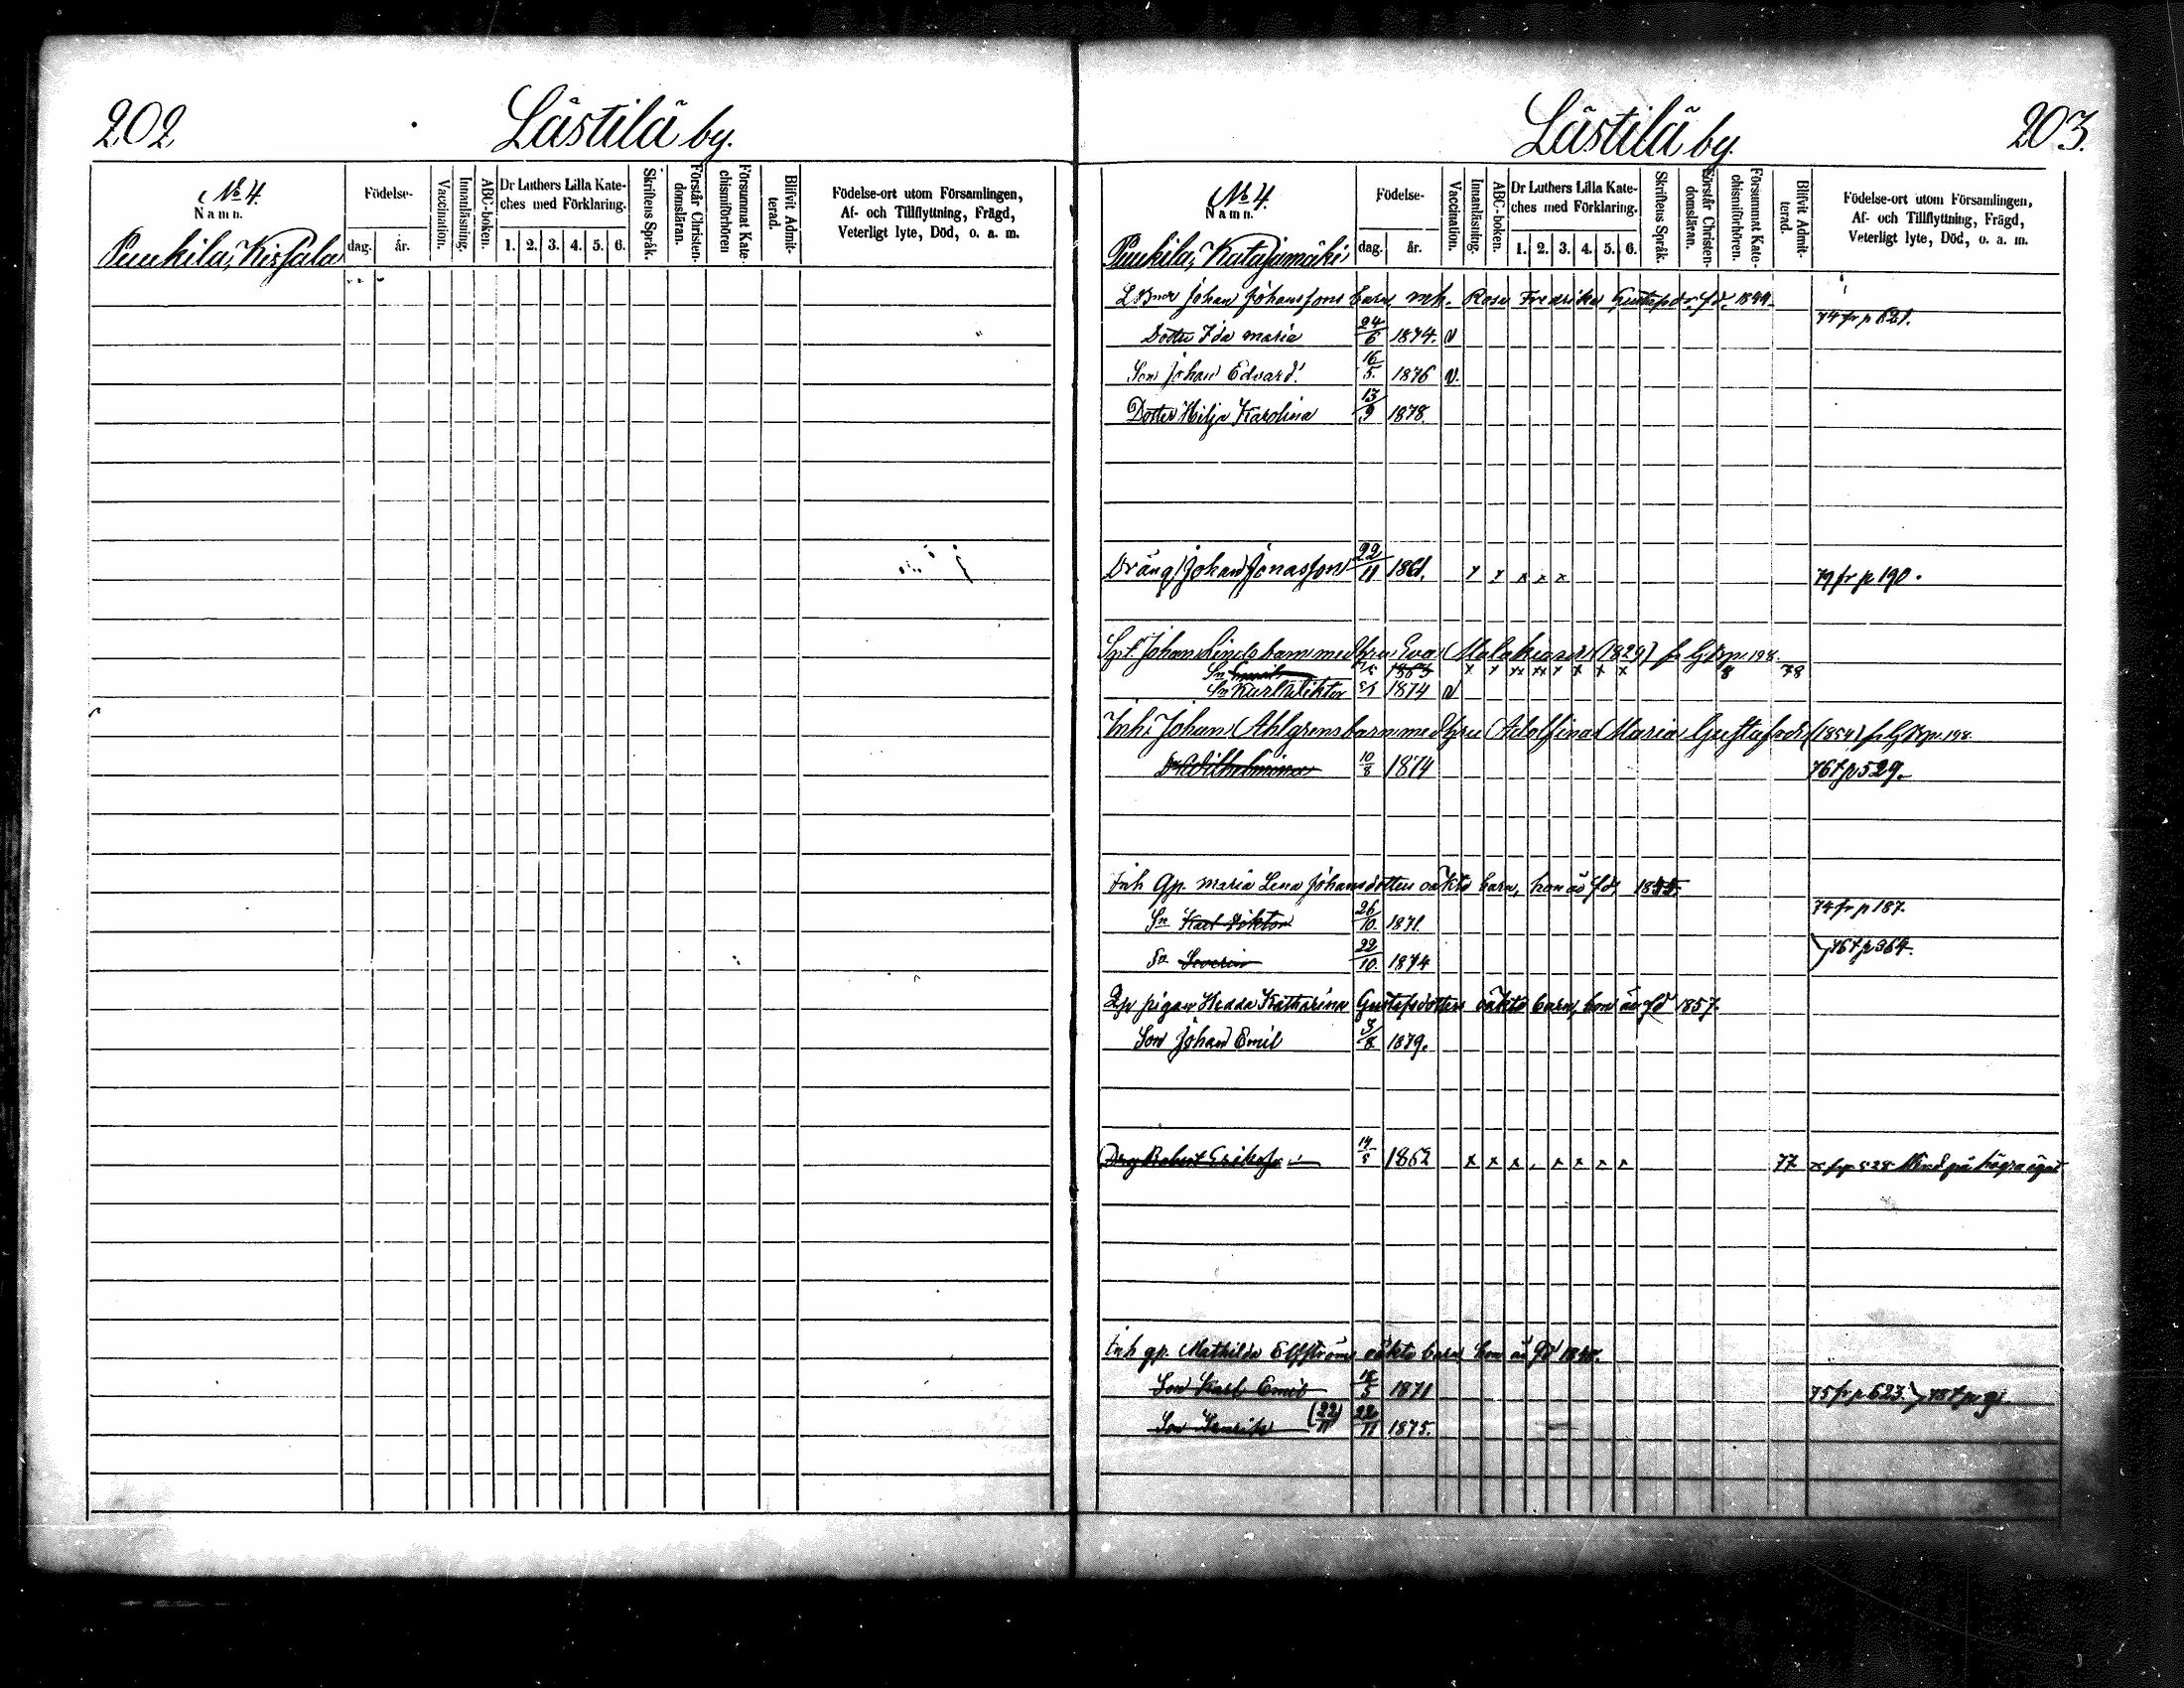 202
Lästilä by.
№ 4.
Namn.
Födelse-
dag.
år.
Vaccination.
Innanläsning.
ABC-boken.
Dr Luthers Lilla Kate-
ches med Förklaring.
1. 2. 3. 4. 5. 6.
Skriftens Språk.
Förstår Christen-
domsläran.
Försummat Kate-
chismiförhören
Blifvit Admit-
terad.
Födelse-ort utom Församlingen,
Af- och Tillflyttning, Frägd,
Veterligt lyte, Död, o. a. m.
Puukila,
Lästilä by.
203.
№ 4.
Namn.
Födelse-
dag.
år.
Vaccination.
Innanläsning.
ABC-boken.
Dr Luthers Lilla Kate-
ches med Förklaring.
1. 2. 3. 4. 5. 6.
Skriftens Språk.
Förstår Christen-
domsläran.
Försummat Kate-
chismiförhören.
Blifvit Admit-
terad.
Födelse-ort utom Församlingen,
Af- och Tillflyttning, Frägd,
Veterligt lyte, Död, o. a. m.
Puukila, Katajamäki
Johan Johanssons barn, mh. Rosa Fredrika Gustafsdr. fd.
74 fr p 621.
Dotter Ida Maria 24/6 1874. v
Son Johan Edvard. 16/5. 1876 v.
Dotter Hilja Karolina 13/9 1878.
Dräng Johan Jonasson 22/11 1861. x x x x x 79 fr p 190.
Johan Linds barn med Hru Eva (1829) fr p. 198.
Sn Emil 1863 x x xx xx x x x x 8 78
Sn Karl Viktor 1874 v
Inh: Johan Ahlgrens barn med Hru Adolfina Maria Gustafsdr (1854) p. 198.
Dr Wilhelmina 10/8 1874 76 t p 529.
Inh Qp. Maria Lena Johansdotters oäkta barn, hon är fd,
74 fr p 187.
Sn Karl Viktor 26/10. 1871.
Sn Severin 22/10. 1874 } 76 t p 364.
Qp pigan Hedda Katharina Gustafsdotters oäkta barn, hon är fd 1857.
Son Johan Emil 3/8. 1879.
Drg Robert Eriksson 14/5 1862 x x x x x x x 77 fr p 528 blind på högra ögat
Inh qp. Mathilda Elfströms oäkta barn hon är fd
Son Karl Emil 1871 75 fr p 623. } 78 t p 91.
Son Henrik (22/11) 22/11 1875.